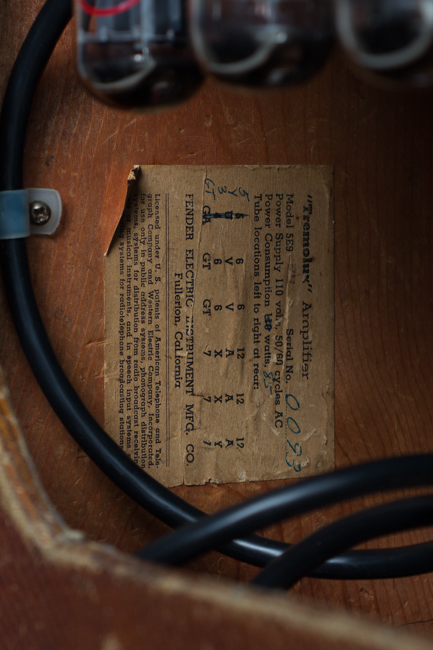 "Tremolux" Amplifier
Model 5E9 Serial No. 0093
Power Supply 110 vol. 50/60 cycles AC
Power Consumption watts.
Tube locations left to right at rear:
5 6 6 12 12 12
Y V V A A A
3 6 6 X X Y
GT GT GT 7 7 7
FENDER ELECTRIC INSTRUMENT MFG. CO.
Fullerton, California
Licensed under U. S. patents of American Telephone and Tele-
graph Company and Western Electric Company, Incorporated,
for use only in public address systems, phonograph distribution
systems, systems for distribution from radio broadcast
musical instruments, and in speech input systems
systems for radiotelephone broadcasting stations